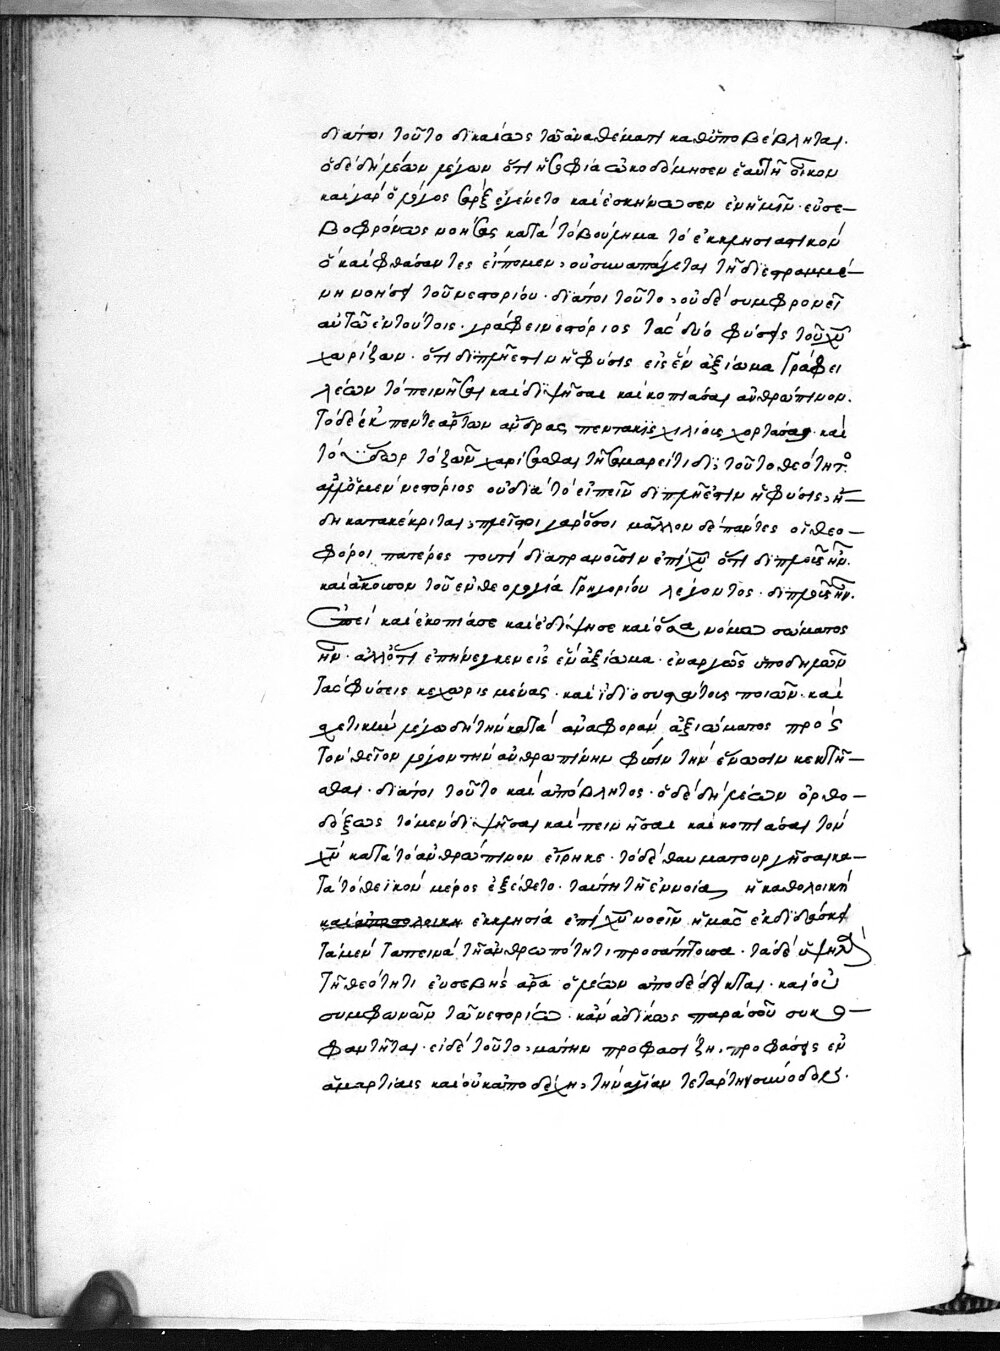 διάτοι τοῦτο δικαίως τῶ ἀναθέματι καθυποβέβληται.
ὁ δὲ δὴ λέων λέγων ὅτι ἡ σοφία ὠκοδόμησεν ἑαυτῆ οἶκον
καὶ γὰρ ὁ λόγος σὰρξ ἐγένετο καὶ ἐσκήνωσεν ἐν ἡμῖν· εὐσε-
βοφρόνως νοήσας κατὰ τὸ βούλημα τὸ ἐκκλησιαστικὸν
ὃ καὶ φθάσαντες εἴπομεν, οὐ συναπάγεται τῆ διεστραμμέ-
νη νοήσει τοῦ νεστορίου· διάτοι τοῦτο, οὐδὲ συμφρονεῖ
αὐτῶ ἐν τούτοις· γράφει νεστόριος τὰς δύο φύσεις τοῦ χυ
χωρίζων· ὅτι διπλῆ ἐστιν ἡ φύσις εἰς ἓν ἀξίωμα γράφει
λέων τὸ πεινῆσαι καὶ διψῆσαι καὶ κοπιάσαι ἀνθρώπινον.
τὸ δὲ ἐκ πέντε ἄρτων ἄνδρας πεντακισχιλίους χορτάσαι· καὶ
τὸ ὕδωρ τὸ ζῶν χαρίσασθαι τῆ σαμαρείτιδι, τοῦτο θεότητο
ἀλλ' ὁ μὲν νεστόριος οὐ διὰ τὸ εἰπεῖν διπλῆ ἐστιν ἡ φύσις, ἤ-
δη κατακέκριται, πλεῖστοι γὰρ ὅσοι μᾶλλον δὲ πάντες οἱ θεο-
φόροι πατέρες τουτὶ διαπρανοῦσιν ἐπὶ χυ ὅτι διπλοῦς ἦν.
καὶ ἄκουσον τοῦ ἐν θεολογία γρηγορίου λέγοντος· διπλοῦς ἦν.
Ἐπεὶ καὶ ἐκοπίασε καὶ ἐδίψησε καὶ ὅσα νόμω σώματος
ἦν· ἀλλ' ὅτι ἐπήνεγκεν εἰς ἓν ἀξίωμα· ἐναργῶς ὑποδηλῶν
τὰς φύσεις κεχωρισμένας· καὶ ἰδιοσυστάτους ποιῶν· καὶ
σχετικὴν λέγω δὴ τὴν κατὰ ἀναφορὰν ἀξιώματος πρὸς
τὸν θεῖον λόγον τὴν ἀνθρωπίνην φύσιν τὴν ἕνωσιν κεκτῆ-
σθαι· διάτοι τοῦτο καὶ ἀπόβλητος· ὁ δὲ δὴ λέων ὀρθο-
δόξως τὸ μὲν διψῆσαι καὶ πεινῆσαι καὶ κοπιάσαι τὸν
χν κατὰ τὸ ἀνθρώπινον εἴρηκε· τὸ δὲ θαυματουργῆσαι κα-
τὰ τὸ θεϊκὸν μέρος ἐξέθετο· ταύτη τῆ ἐννοία, ἡ καθολικὴ
καὶ ἀποστολικὴ ἐκκλησία ἐπὶ χυ νοεῖν ἡμᾶς ἐκδιδάσκει
τὰ μὲν ταπεινὰ τῆ ἀνθρωπότητι προσάπτουσα· τὰ δὲ ὑψηλὰ
τῆ θεότητι εὐσεβὴς ἄρα ὁ λέων ἀποδέδεικται· καὶ οὐ
συμφωνῶν τῶ νεστορίω· κἂν ἀδίκως παρὰ σοῦ συκο-
φαντῆται· εἰ δὲ τοῦτο, μάτην προφασίζη, προφάσεις ἐν
ἁμαρτίαις καὶ οὐκ ἀποδέχη, τὴν ἁγίαν τετάρτην σύνοδον.